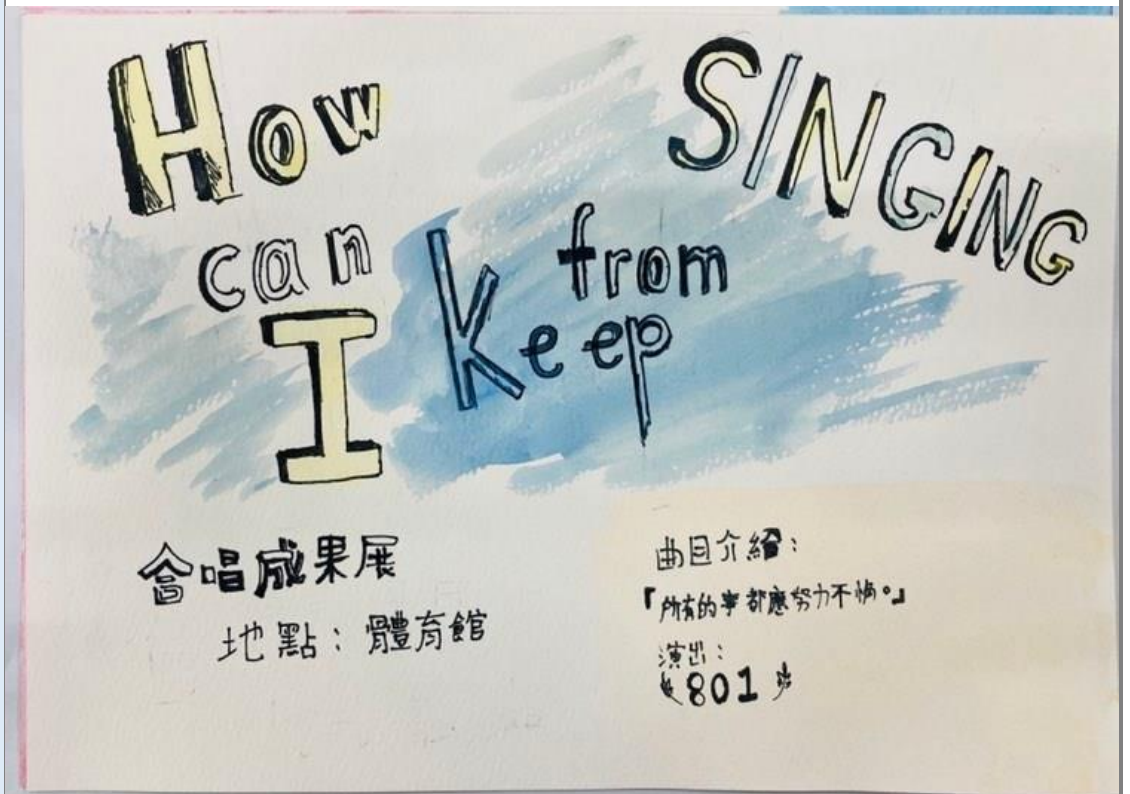 How
can
I
Keep
from
SINGING
合唱成果展
地點：體育館
曲目介紹：
『所有的事都應努力不懈。』
演出：
801